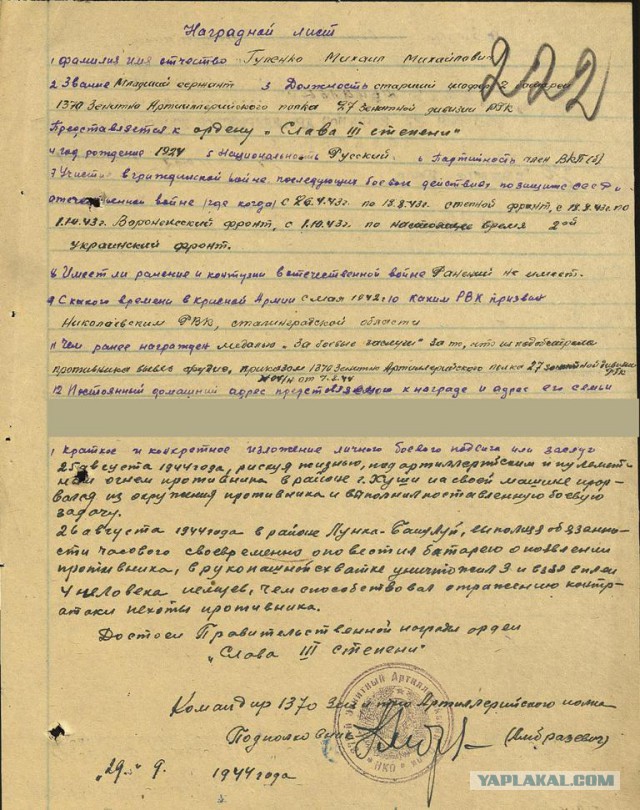 Наградной лист
222
1 фамилия имя отчество Гупенко Михаил Михайлович
2 Звание Младший сержант 3 Должность старший шофер 2 батареи
1370 Зенитно Артиллерийского полка 27 зенитной дивизии РГК
Представляется к ордену „Слава III степени"
4 год рождение 1924 5 Национальность Русский. 6 Партийность член ВКП(б)
7 Участие в гражданской войне, последующих боевых действиях по защите СССР и
отечественной войне (где когда) с 26.4.43г. по 18.8.43г. степной фронт, с 18.8.43г. по
1.10.43г. Воронежский фронт, с 1.10.43г. по настоящее время 2ой
украинский фронт.
8 Имеет ли ранение и контузии в отечественной войне Ранений не имеет.
9 С какого времени в красной Армии с мая 1942г. 10 каким РВК призван
Николаевским РВК, сталинградской области
11 Чем ранее награжден медалью „За боевые заслуги" за то, что из под обстрела
противника вывез орудие, приказом 1370 Зенитно Артиллерийского полка 27 зенитной дивизии РГК
от 7.2.44
12 Постоянный домашний адрес представляемого к награде и адрес его семьи
1 краткое и конкретное изложение личного боевого подвига или заслуг
25 августа 1944 года, рискуя жизнью, под артиллерийским и пулемет-
ным огнем противника в районе г. Хуши на своей машине прор-
вался из окружения противника и выполнил поставленную боевую
задачу.
26 августа 1944 года в районе Лунка-Банулуй, выполняя обязанно-
сти часового своевременно оповестил батарею о появлении
противника, в рукопашной схватке уничтожил 3 и взял в плен
4 человека немцев, чем способствовал отражению контр-
атаки пехоты противника.
Достоен Правительственной награды орден
„Слава III степени"
Командир 1370 Зенитно Артиллерийского полка
Подполковник (Амбразевич)
„29" 9. 1944 года
НКО
YAPLAKAL.COM